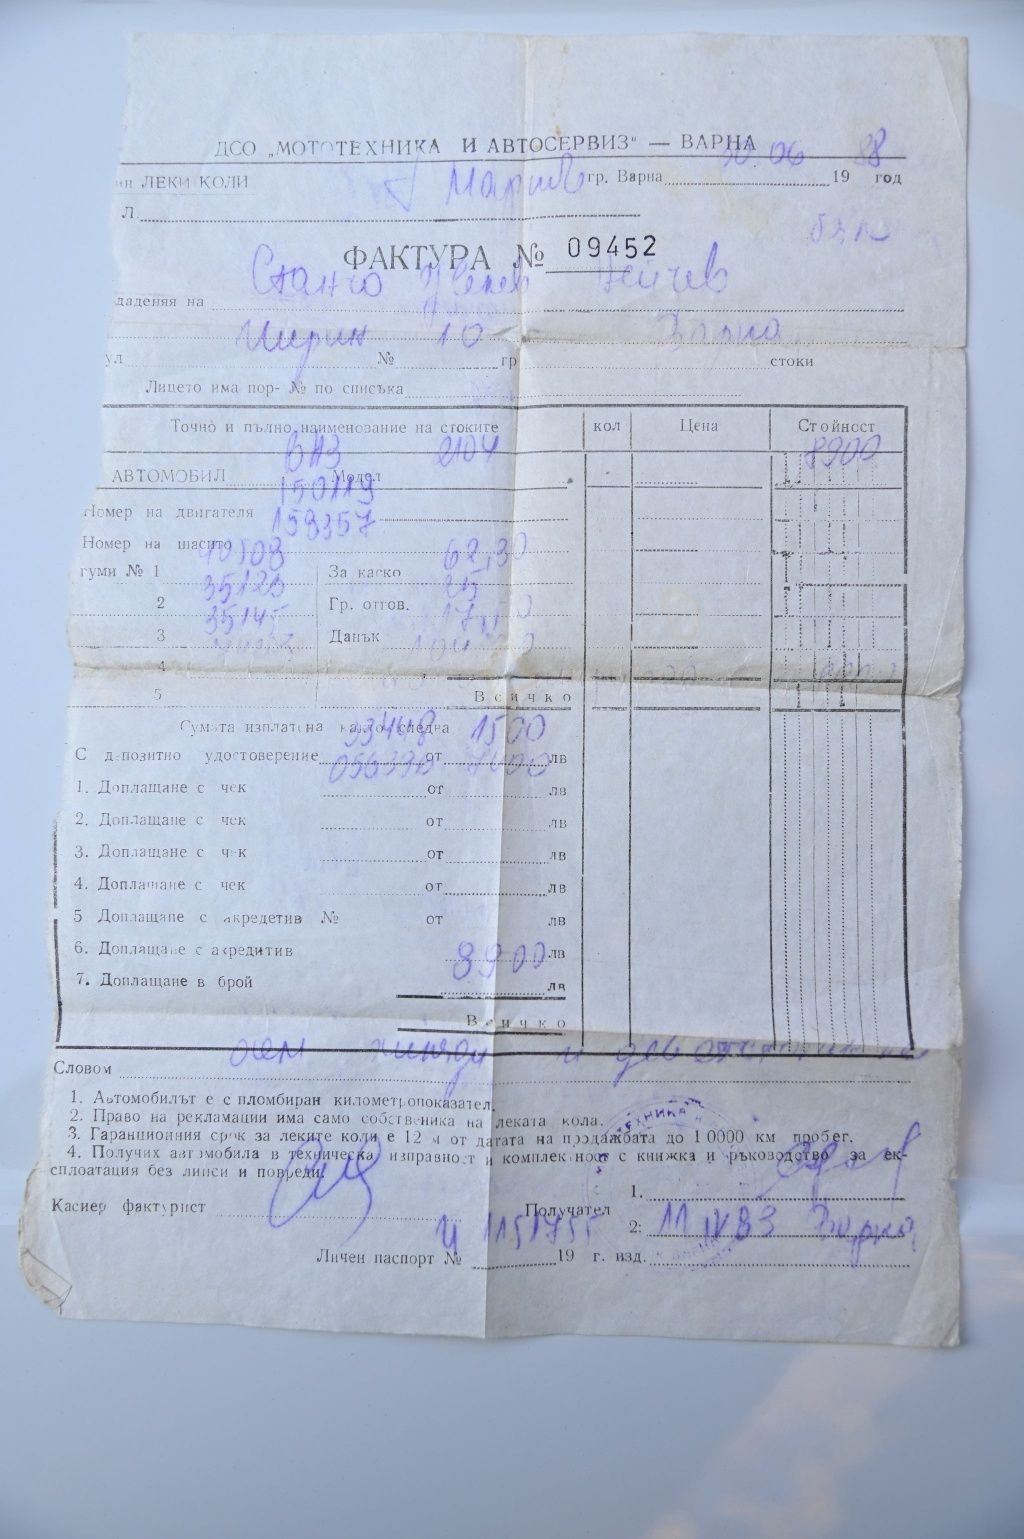 ДСО „МОТОТЕХНИКА И АВТОСЕРВИЗ" — ВАРНА
ин ЛЕКИ КОЛИ гр. Варна 30 06 1988 год
Л.
ФАКТУРА № 09452
Станчо Нейчев
даденя на
Варна
ул № 10 гр стоки
Лицето има пор- № по списъка
Точно и пълно наименование на стоките кол Цена Стойност
АВТОМОБИЛ ВАЗ Модел 2104 8900
Номер на двигателя 150119
Номер на шасито 159357
гуми № 1 За каско 62,30
2 35123 Гр. отгов. 25
3 35145 Данък
4
5 Всичко
Сумата изплатена както следва
С депозитно удостоверение 33448 от 1500 лв
1. Доплащане с чек 056390 от 7400 лв
2. Доплащане с чек от лв
3. Доплащане с чек от лв
4. Доплащане с чек от лв
5 Доплащане с акредетив № от лв
6. Доплащане с акредитив лв
7. Доплащане в брой 8900 лв
Всичко
Словом осем хиляди и деветстотин
1. Автомобилът е с пломбиран километропоказател.
2. Право на рекламации има само собственика на леката кола.
3. Гаранционния срок за леките коли е 12 м от датата на продажбата до 10000 км пробег.
4. Получих автомобила в техническа изправност и комплексност с книжка и ръководство за ек-
сплоатация без липси и повреди.
Касиер фактурист Получател 1.
2:
Личен паспорт № 19 г. изд. Варна